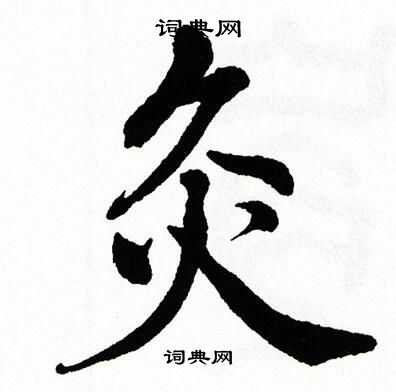 词典网
灸
词典网